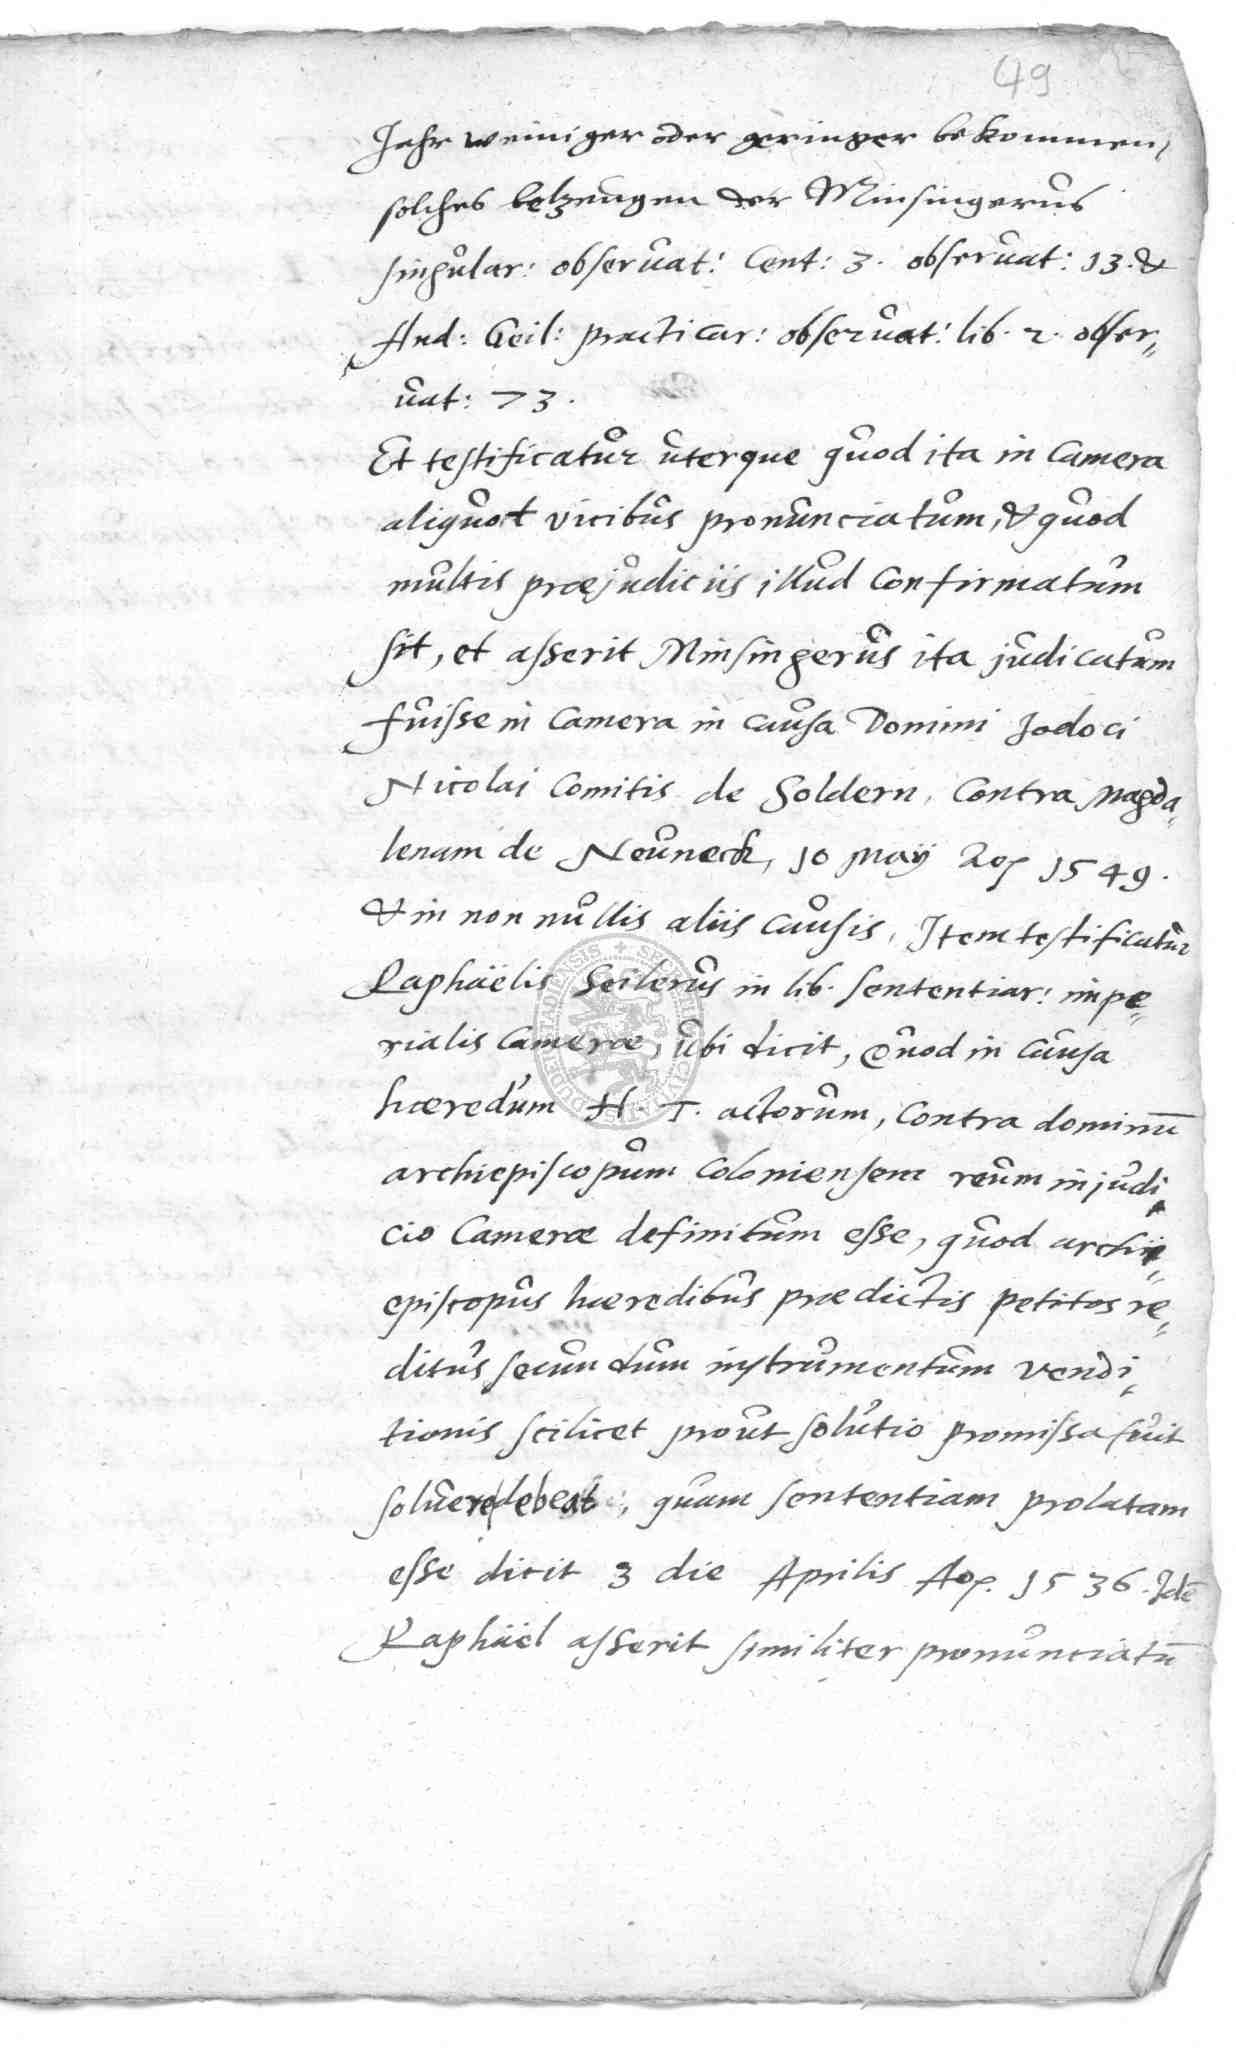 49
Jahr weiniger oder geringer bekommen,
solches betzeugen der Minsingerus
singular: observat: Cent: 3. observat: 13. &
And: Geil: practicar: observat: lib. 2. obser„
vat: 73.
Et testificatur uterque quod ita in Camera
aliquot vicibus pronunciatum, & quod
multis præjudiciis illud confirmatum
sit, et asserit Minsingerus ita judicatum
fuisse in Camera in causa Domini Jodoci
Nicolai Comitis de Soldern, Contra Magda„
lenam de Neuneck, 10 Maÿ Ao 1549.
& in non nullis aliis causis, Item testificatur
Raphaëlis Seilerus in lib. sententiar: impe„
rialis Cameræ, ubi dicit, Quod in causa
hæredum H. T. actorum, contra dominū
archiepiscopum Coloniensem reum in judi„
cio Cameræ definitum esse, quod archi„
episcopus hæredibus prædictis petitos re„
ditus secundum instrumentum vendi„
tionis scilicet prout solutio promissa fuit
solvere debeat, quam sententiam prolatam
esse dicit 3 die Aprilis Ao. 1536. Idē
Raphaël asserit similiter pronunciatū